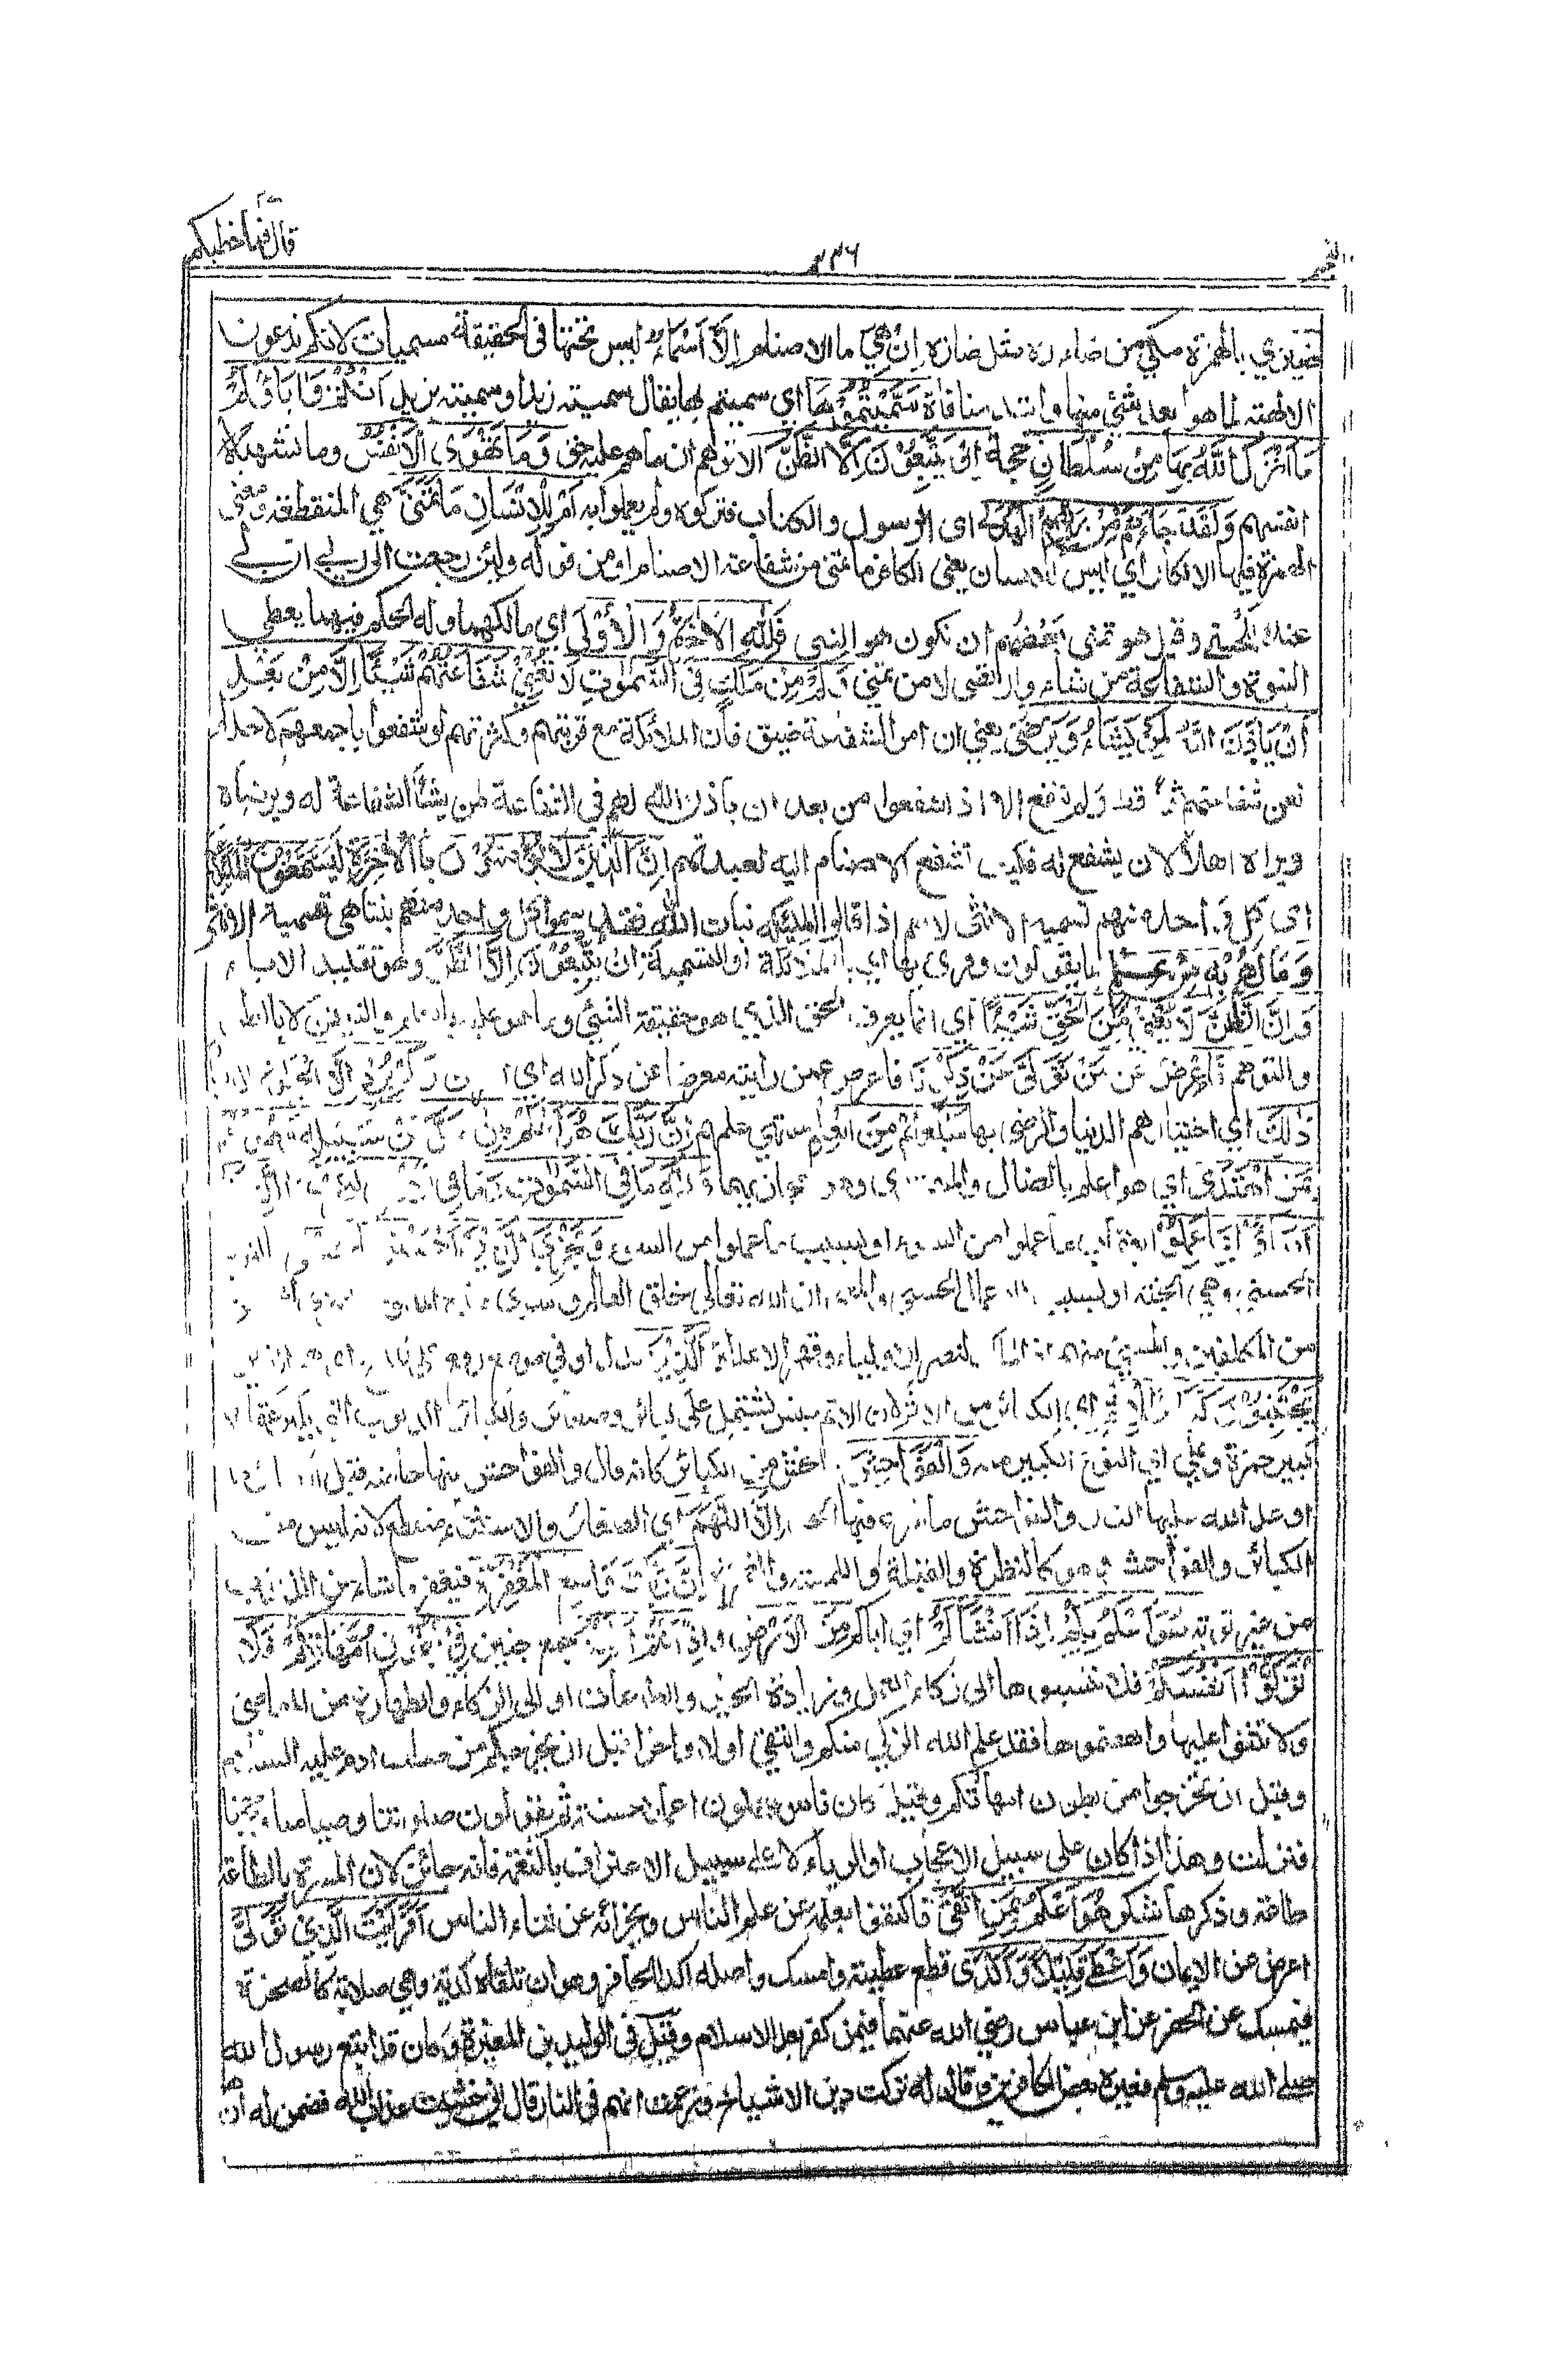 قال فما خطبكم
النجم
ضيزى بالهمزة مكي من ضازه مثل ضازه اِنْ هِيَ ما الاصنام اِلَّا اَسْمَاءٌ ليس تحتها في الحقيقة مسميات لانكم تدعون
الالهية لما هو ابعد شيء منها واشد منافاة سَمَّيْتُمُوْهَا اي سميتم بها يقال سميته زيدا وسميته بزيد اَنْتُمْ وَاٰبَاؤُكُمْ
مَا اَنْزَلَ اللّٰهُ بِهَا مِنْ سُلْطَانٍ حجة اِنْ يَتَّبِعُوْنَ اِلَّا الظَّنَّ الا توهم ان ما هم عليه حق وَمَا تَهْوَى الْاَنْفُسُ وما تشتهيه
انفسهم وَلَقَدْ جَاءَهُمْ مِنْ رَبِّهِمُ الْهُدٰى اى الرسول والكتاب فتركوه ولم يعملوا به اَمْ لِلْاِنْسَانِ مَا تَمَنّٰى هي ام المنقطعة ومعنى
الهمزة فيها الانكار اي ليس للانسان يعني الكافر ما تمنى من شفاعة الاصنام او من قوله ولئن رجعت الى ربي ان لي
عنده للحسنى وقيل هو تمنى بعضهم ان يكون هو النبي فَلِلّٰهِ الْاٰخِرَةُ وَالْاُوْلٰى اي هو مالكهما وله الحكم فيهما يعطي
النبوة والشفاعة من شاء وارتضى لا من تمنى وَكَمْ مِنْ مَلَكٍ فِى السَّمٰوٰتِ لَا تُغْنِيْ شَفَاعَتُهُمْ شَيْئًا اِلَّا مِنْ بَعْدِ
اَنْ يَاْذَنَ اللّٰهُ لِمَنْ يَشَاءُ وَيَرْضٰى يعني ان امر الشفاعة ضيق فان الملائكة مع قربتهم وكثرتهم لو شفعوا باجمعهم لاحد لم
تغن شفاعتهم شيئا قط ولم تنفع الا اذا شفعوا من بعد ان ياذن الله لهم في الشفاعة لمن يشاء الشفاعة له ويرضاه
ويراه اهلا لان يشفع له فكيف تشفع الاصنام اليه لعبدتهم اِنَّ الَّذِيْنَ لَا يُؤْمِنُوْنَ بِالْاٰخِرَةِ لَيُسَمُّوْنَ الْمَلٰئِكَةَ
اى كل واحد منهم تسمية الانثى لانهم اذا قالوا الملئكة بنات الله فقد سموا كل واحد منهم بنتا وهي تسمية الانثى
وَمَا لَهُمْ بِهٖ مِنْ عِلْمٍ بما يقولون وقرئ بها اي بالملائكة او التسمية اِنْ يَتَّبِعُوْنَ اِلَّا الظَّنَّ وهو تقليد الاباء
وَاِنَّ الظَّنَّ لَا يُغْنِيْ مِنَ الْحَقِّ شَيْئًا اي انما يعرف الحق الذي هو حقيقة الشيء وما هو عليه بالعلم والتيقن لا بالظن
والتوهم فَاَعْرِضْ عَنْ مَنْ تَوَلّٰى عَنْ ذِكْرِنَا فاعرض عمن رايته معرضا عن ذكر الله اي القران وَلَمْ يُرِدْ اِلَّا الْحَيٰوةَ الدُّنْيَا
ذٰلِكَ اي اختيارهم الدنيا والرضى بها مَبْلَغُهُمْ مِنَ الْعِلْمِ منتهى علمهم اِنَّ رَبَّكَ هُوَ اَعْلَمُ بِمَنْ ضَلَّ عَنْ سَبِيْلِهٖ وَهُوَ اَعْلَمُ
بِمَنِ اهْتَدٰى اي هو اعلم بالضال والمهتدي وهو مجازيهما وَلِلّٰهِ مَا فِى السَّمٰوٰتِ وَمَا فِى الْاَرْضِ لِيَجْزِيَ الَّذِيْنَ
اَسَاءُوْا بِمَا عَمِلُوْا بعقاب ما عملوا من السوء او بسبب ما عملوا من السوء وَيَجْزِيَ الَّذِيْنَ اَحْسَنُوْا بِالْحُسْنٰى بالمثوبة
الحسنى وهي الجنة او بسبب الاعمال الحسنى والمعنى ان الله تعالى خلق العالم وسوى
من المكلفين والمسيء منهم اذ الملك لنصر الاولياء وقهر الاعداء اَلَّذِيْنَ بدل او في موضع رفع على المدح اي هم الذين
يَجْتَنِبُوْنَ كَبَائِرَ الْاِثْمِ اي الكبائر من الاثم لان الاثم جنس يشتمل على كبائر وصغائر والكبائر الذنوب التي يكبر عقابها
كبير حمزة وعلي اي النوع الكبير منه وَالْفَوَاحِشَ ما فحش من الكبائر كانه قال والفواحش منها خاصة قيل الكبائر ما
اوعد الله عليها النار والفواحش ما شرع فيها الحد اِلَّا اللَّمَمَ اي الصغائر والاستثناء منقطع لانه ليس من
الكبائر والفواحش وهو كالنظرة والقبلة واللمسة والغمزة اِنَّ رَبَّكَ وَاسِعُ الْمَغْفِرَةِ فيغفر ما شاء من الذنوب
من غير توبة هُوَ اَعْلَمُ بِكُمْ اِذْ اَنْشَاَكُمْ اي اباكم مِنَ الْاَرْضِ وَاِذْ اَنْتُمْ اَجِنَّةٌ جمع جنين فِيْ بُطُوْنِ اُمَّهَاتِكُمْ فَلَا
تُزَكُّوْا اَنْفُسَكُمْ فلا تنسبوها الى زكاء العمل وزيادة الخير والطاعات او الى الزكاء والطهارة من المعاصي
ولا تثنوا عليها واهضموها فقد علم الله الزكي منكم والتقي اولا واخرا قبل ان يخرجكم من صلب ادم عليه السلام
وقبل ان تخرجوا من بطون امهاتكم وقيل كان ناس يعملون اعمالا حسنة ثم يقولون صلاتنا وصيامنا وحجنا
فنزلت وهذا اذا كان على سبيل الاعجاب او الرياء لا على سبيل الاعتراف بالنعمة فانه جائز لان المسرة بالطاعة
طاعة وذكرها شكر هُوَ اَعْلَمُ بِمَنِ اتَّقٰى فاكتفوا بعلمه عن علم الناس وبجزائه عن ثناء الناس اَفَرَاَيْتَ الَّذِيْ تَوَلّٰى
اعرض عن الايمان وَاَعْطٰى قَلِيْلًا وَّاَكْدٰى قطع عطيته وامسك واصله اكداء الحافر وهو ان تلقاه كدية وهي صلابة كالصخرة
فيمسك عن الحفر عن ابن عباس رضي الله عنهما فيمن كفر بعد الاسلام وقيل في الوليد بن المغيرة وكان قد اتبع رسول الله
صلى الله عليه وسلم فعيره بعض الكافرين وقال له تركت دين الاشياخ وزعمت انهم في النار قال اني خشيت عذاب الله فضمن له ان